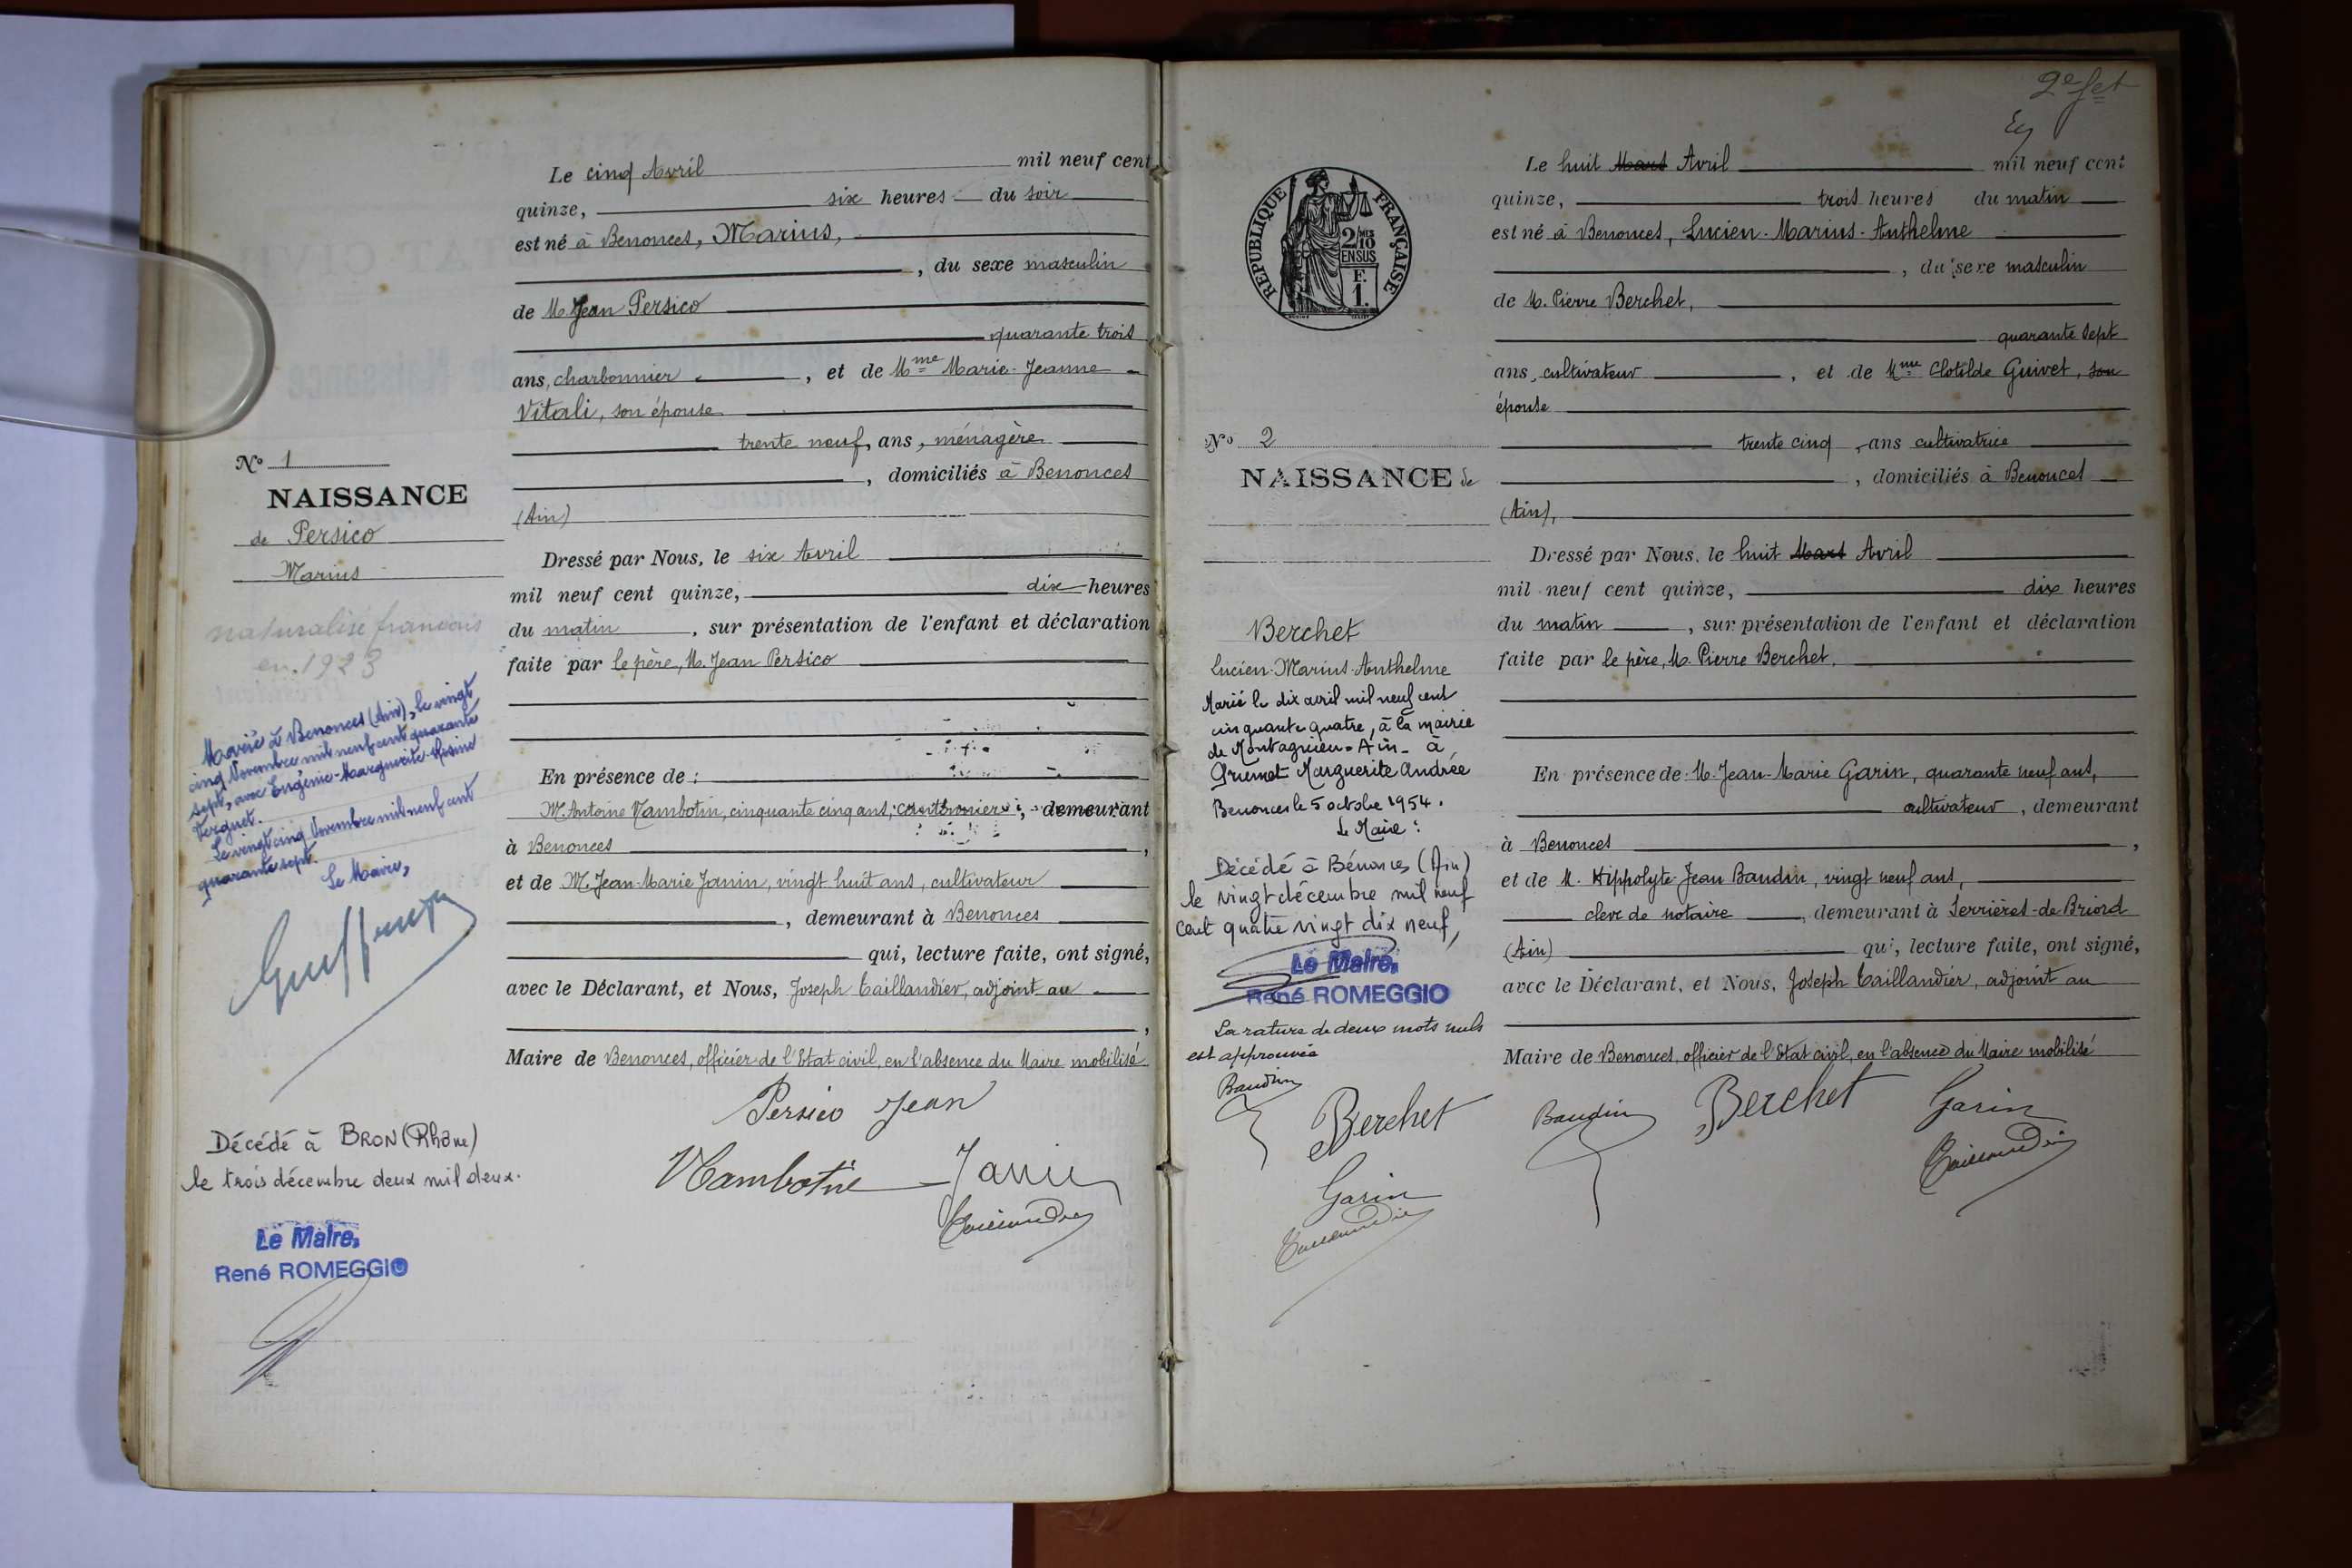 Le cinq Avril mil neuf cent
quinze, six heures du soir
est né à Benonces, Marius,
, du sexe masculin
de M. Jean Persico
quarante trois
ans, charbonnier , et de Mme Marie-Jeanne
Vitali, son épouse
trente neuf ans, ménagère
, domiciliés à Benonces
(Ain)
Dressé par Nous, le six Avril
mil neuf cent quinze, dix heures
du matin , sur présentation de l'enfant et déclaration
faite par le père, M. Jean Persico
En présence de :
M. Antoine Nambotin, cinquante cinq ans, cantonnier, demeurant
à Benonces ,
et de M. Jean-Marie Janin, vingt huit ans, cultivateur
, demeurant à Benonces
qui, lecture faite, ont signé,
avec le Déclarant, et Nous, Joseph Taillandier, adjoint au
,
Maire de Benonces, officier de l'Etat civil, en l'absence du Maire mobilisé
Persico Jean
Nambotin Janin
Taillandier
No 1
NAISSANCE
de Persico
Marius
naturalisé français
en 1923
Marié à Benonces (Ain), le vingt
cinq Novembre mil neuf cent quarante
sept, avec Eugénie-Marguerite-Rosine
Verguet.
Le vingt cinq Novembre mil neuf cent
quarante sept.
Le Maire,
Décédé à BRON (Rhône)
le trois décembre deux mil deux.
Le Maire,
René ROMEGGIO
2e fet
RÉPUBLIQUE FRANÇAISE
2/10
EN SUS
F.
1.
No 2
NAISSANCE de
Berchet
Lucien-Marius-Anthelme
Marié le dix avril mil neuf cent
cinquante quatre, à la mairie
de Montagnieu - Ain - à
Grumet Marguerite Andrée
Benonces le 5 octobre 1954.
Le Maire :
Décédé à Bénonces (Ain)
le vingt décembre mil neuf
cent quatre vingt dix neuf,
Le Maire,
René ROMEGGIO
La rature de deux mots nuls
est approuvée
Baudin
Berchet
Garin
Taillandier
Le huit Mars Avril mil neuf cent
quinze, trois heures du matin
est né à Benonces, Lucien-Marius-Anthelme
, du sexe masculin
de M. Pierre Berchet,
quarante sept
ans, cultivateur , et de Mme Clotilde Guivet, son
épouse
trente cinq ans cultivatrice
, domiciliés à Benonces
(Ain),
Dressé par Nous, le huit Mars Avril
mil neuf cent quinze, dix heures
du matin , sur présentation de l'enfant et déclaration
faite par le père, M. Pierre Berchet,
En présence de M. Jean-Marie Garin, quarante neuf ans,
cultivateur, demeurant
à Benonces ,
et de M. Hippolyte Jean Baudin, vingt neuf ans,
clerc de notaire , demeurant à Serrières-de-Briord
(Ain) qui, lecture faite, ont signé,
avec le Déclarant, et Nous, Joseph Taillandier, adjoint au
Maire de Benonces, officier de l'Etat civil, en l'absence du Maire mobilisé
Baudin Berchet Garin
Taillandier